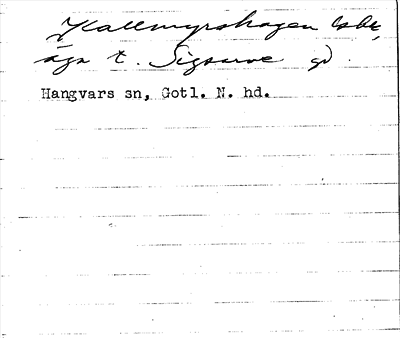 Hallmyrshagen
äga t. Sigsarve gd
Hangvars sn, Gotl. N. hd.